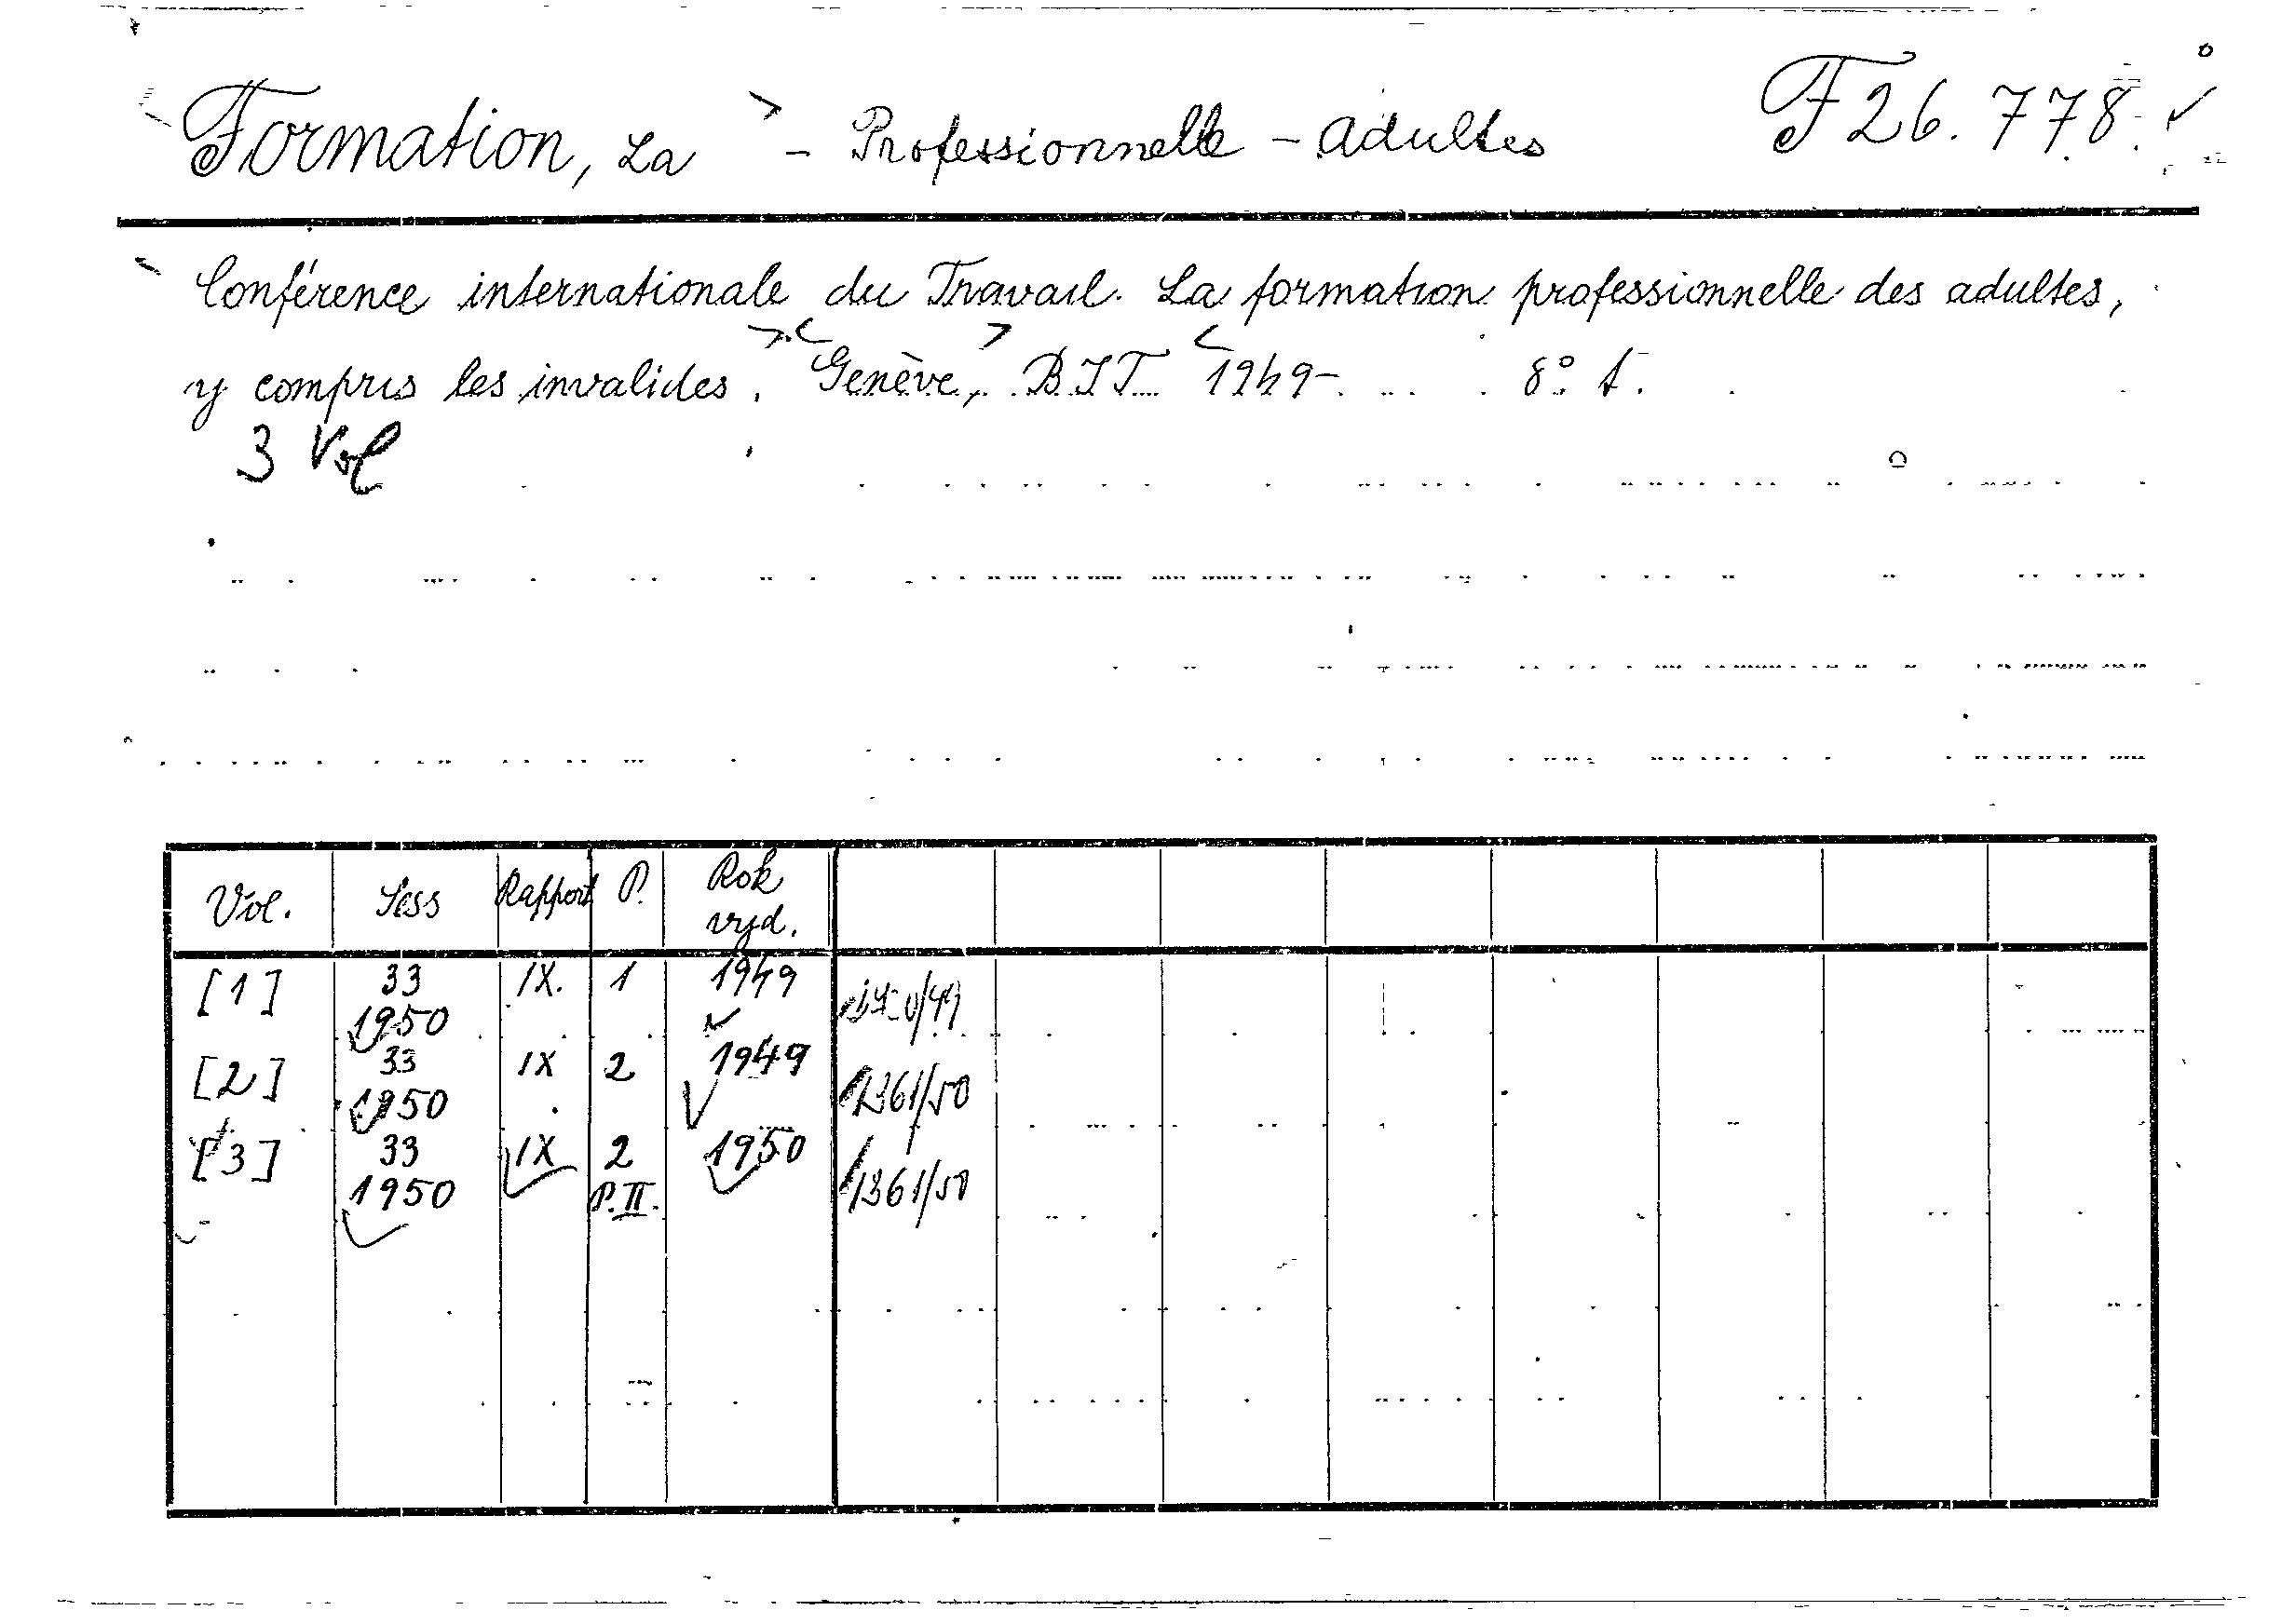 Formation, La - Professionnelle - Adultes F 26.778.
Conférence internationale du Travail. La formation professionnelle des adultes,
y compris les invalides. Genève, BIT 1949- 8° t.
3 Vol
Vol. Sess Rapport P. Rok vyd.
[1] 33 1950 IX. 1 1949
[2] 33 1950 IX 2 1949 1361/50
[3] 33 1950 IX 2 P.II. 1950 1361/50